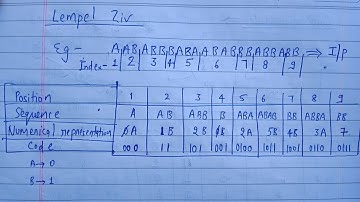 Lempel Ziv
Eg - A|AB|ABB|B|ABA|ABAB|BB|ABBA|BB ⇒ I/P
Index - 1 2 3 4 5 6 7 8 9
Position 1 2 3 4 5 6 7 8 9
Sequence A AB ABB B ABA ABAB BB ABBA BB
Numerical representation ϕA 1B 2B ϕB 2A 5B 4B 3A 7
Code 000 11 101 001 0100 1011 1001 0110 0111
A → 0
B → 1